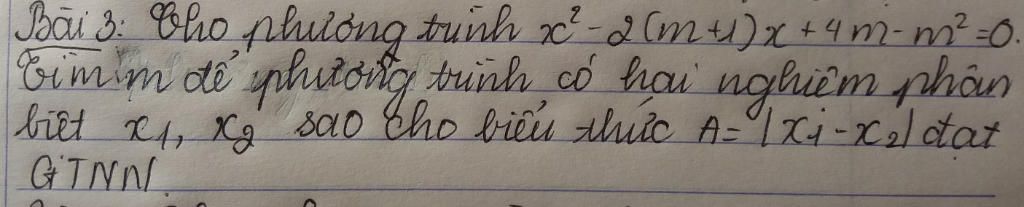 Bài 3: Cho phương trình x² - 2(m+1)x + 4m - m² = 0.
Tìm m để phương trình có hai nghiệm phân
biệt x₁, x₂ sao cho biểu thức A = |x₁ - x₂| đạt
GTNN.